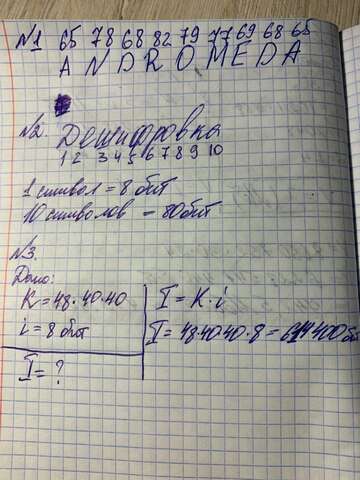 №1 65 78 68 82 79 77 69 68 65
A N D R O M E D A
№2. Дешифровка
1 2 3 4 5 6 7 8 9 10
1 символ = 8 бит
10 символов – 80 бит
№3.
Дано:
K = 48·40·40
i = 8 бит
I = ?
I = K·i
I = 48·40·40·8 = 614400 би